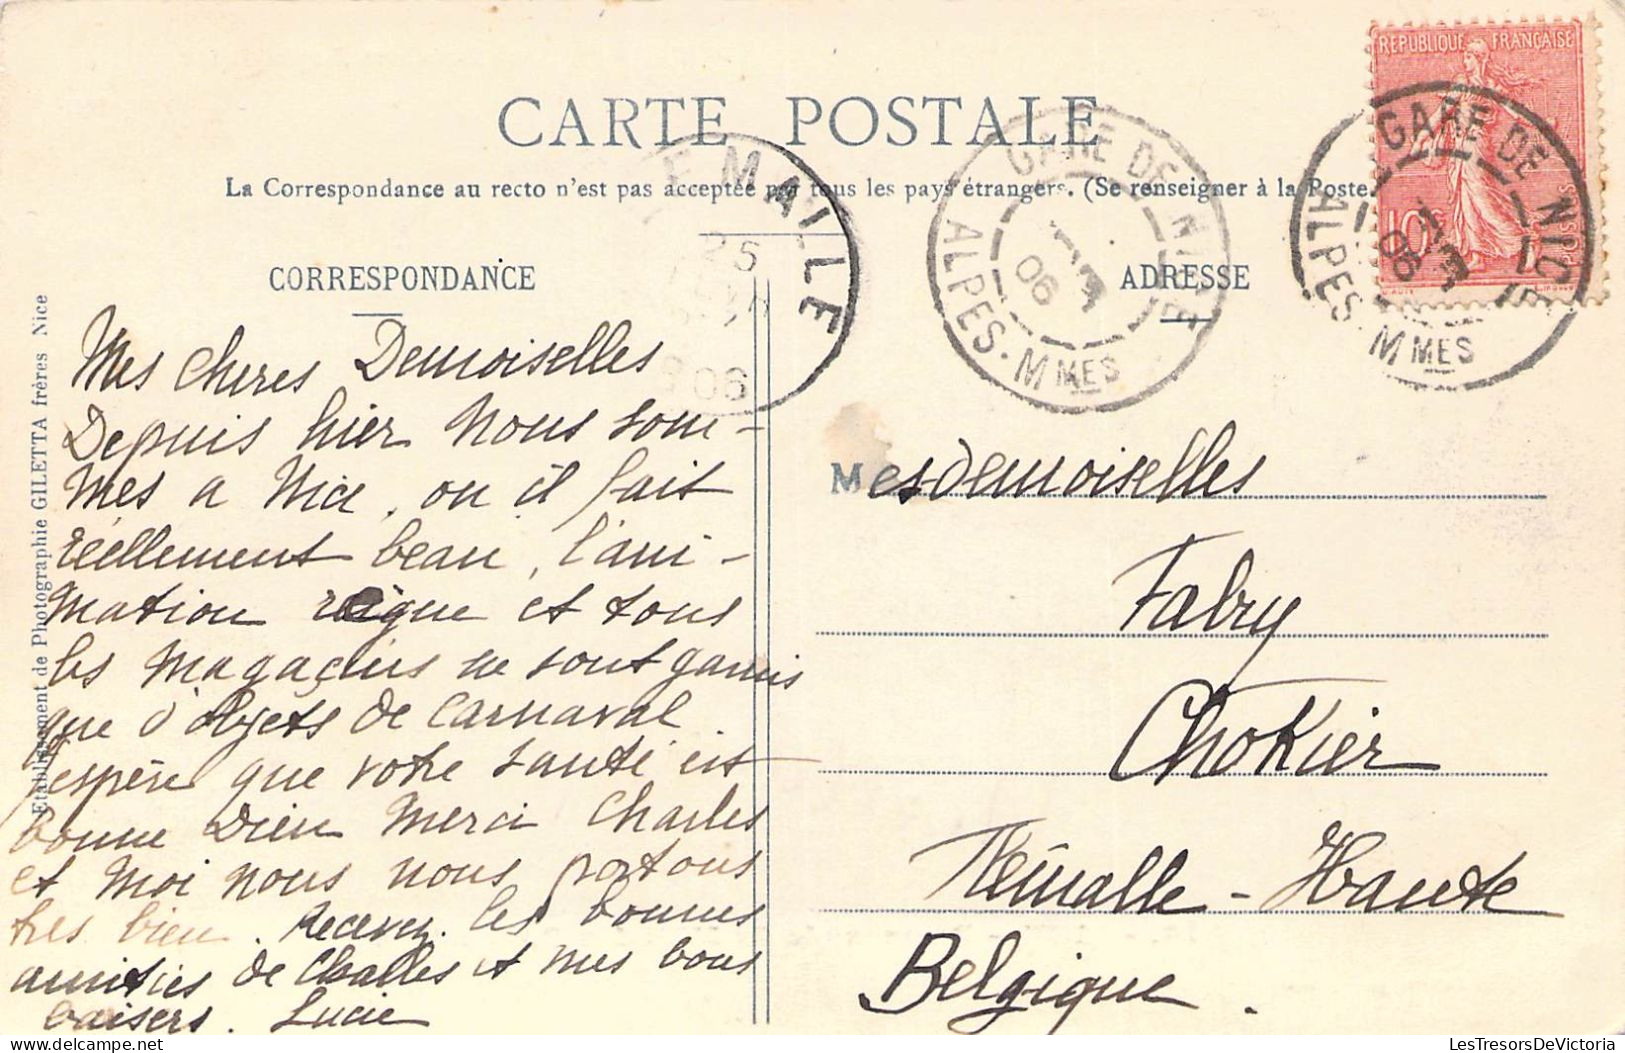 RÉPUBLIQUE FRANÇAISE
10c
POSTES
CARTE POSTALE
La Correspondance au recto n'est pas acceptée par tous les pays étrangers. (Se renseigner à la Poste.
CORRESPONDANCE
ADRESSE
EMAILE
25
06
GARE DE NICE
1 3
06
ALPES-MMES
GARE DE NICE
1 3
06
ALPES-MMES
Etablissement de Photographie GILETTA frères Nice
Mes cheres Demoiselles
Depuis hier nous som-
mes a Nice, ou il fait
réellement beau, l'ani-
mation reigne et tous
les magaçins ne sont garnis
que d'objets de Carnaval
J'espère que votre santé est
bonne Dieu merci Charles
et moi nous nous portons
tres bien. Recevez les bonnes
amitiés de Challes et mes bons
baisers. Lucie
Mesdemoiselles
Fabry
Chokier
Flémalle-Haute
Belgique.
LesTresorsDeVictoria